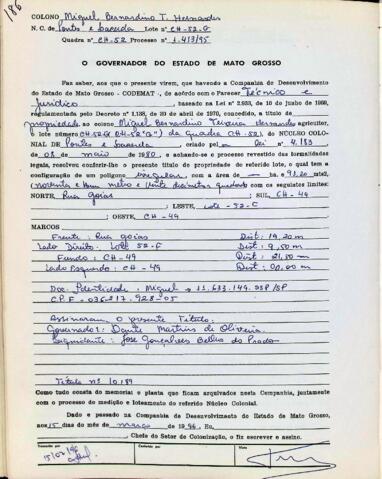 186
COLONO Miguel Bernardino T. Hernandes
N. C. de Pontes e Lacerda Lote nº CH-52-G
Quadra nº CH-52 Processo nº 1.413/95
O GOVERNADOR DO ESTADO DE MATO GROSSO
Faz saber, aos que o presente virem, que havendo a Companhia de Desenvolvimento
do Estado de Mato Grosso - CODEMAT -, de acordo com o Parecer Técnico e
Jurídico, baseado na Lei nº 2.933, de 10 de junho de 1969,
regulamentada pelo Decreto nº 1.138, de 30 de abril de 1970, concedido, a título de
propriedade, ao colono Miguel Bernardino Teixeira Hernandes agricultor,
o lote número CH-52-G (CH-52"G") da Quadra CH-52, do NÚCLEO COLO-
NIAL DE Pontes e Lacerda, criado pela Lei nº 4.183
de 08 de maio de 1980, e achando-se o processo revestido das formalidades
legais, resolveu conferir-lhe o presente título de propriedade do referido lote, o qual tem a
configuração de um polígono irregular, com a área de — ha. 91.20 mts2,
noventa e hum metro e vinte decimetros quadrado com os seguintes limites:
NORTE, Rua Goiás; SUL, CH-49
; LESTE, Lote -52-C
; OESTE, CH-49
MARCOS
Frente: Rua Goiás Dist: 19,20 m
Lado Direito: Lote 52-G Dist: 9,50 m
Fundo: CH-49 Dist: 21,30 m
Lado Esquerdo: CH-49 Dist: 00,00 m
Doc. Identidade: Miguel - 11.633.149.SSP/SP
C.P.F - 036.217.928-05
Assinaram o presente Título:
Governador: Dante Martins de Oliveira
Liquidante: José Gonçalves Botelho do Prado
Título nº 10.189
Como tudo consta do memorial e planta que ficam arquivados nesta Companhia, juntamente
com o processo de medição e loteamento do referido Núcleo Colonial.
Dado e passado na Companhia de Desenvolvimento do Estado de Mato Grosso,
aos 15 dias do mês de março de 1996. Eu,
Chefe do Setor de Colonização, o fiz escrever e assino.
15/03/96